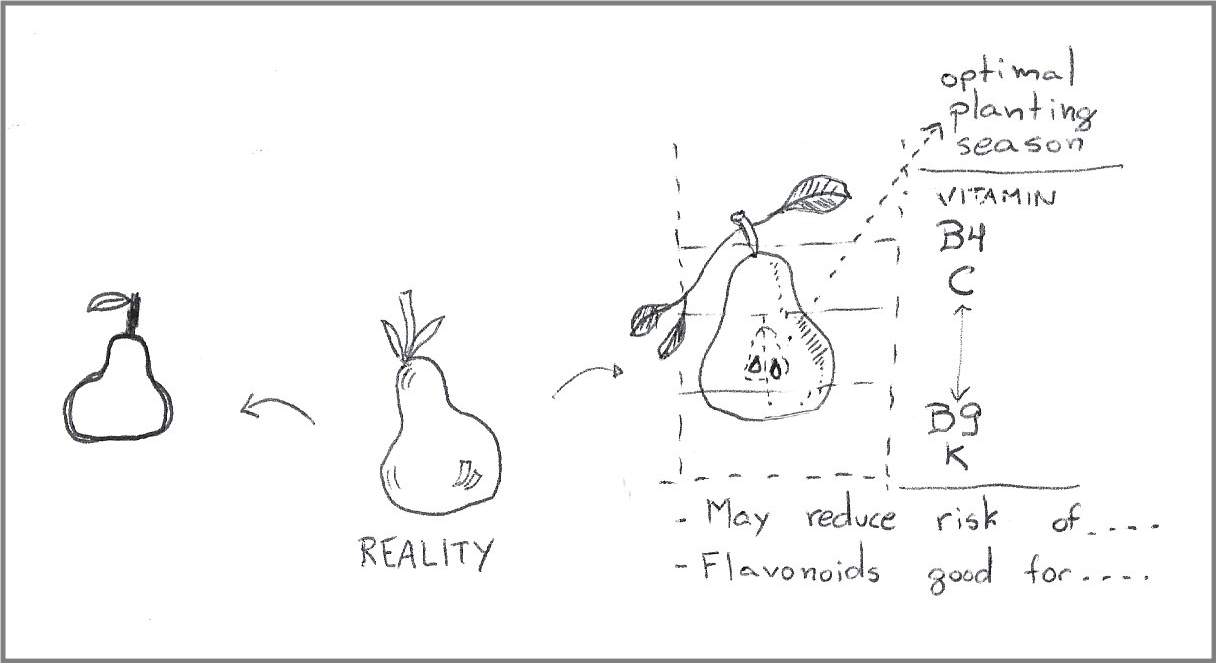 optimal
planting
season
VITAMIN
B4
C
B9
K
- May reduce risk of....
- Flavonoids good for....
REALITY